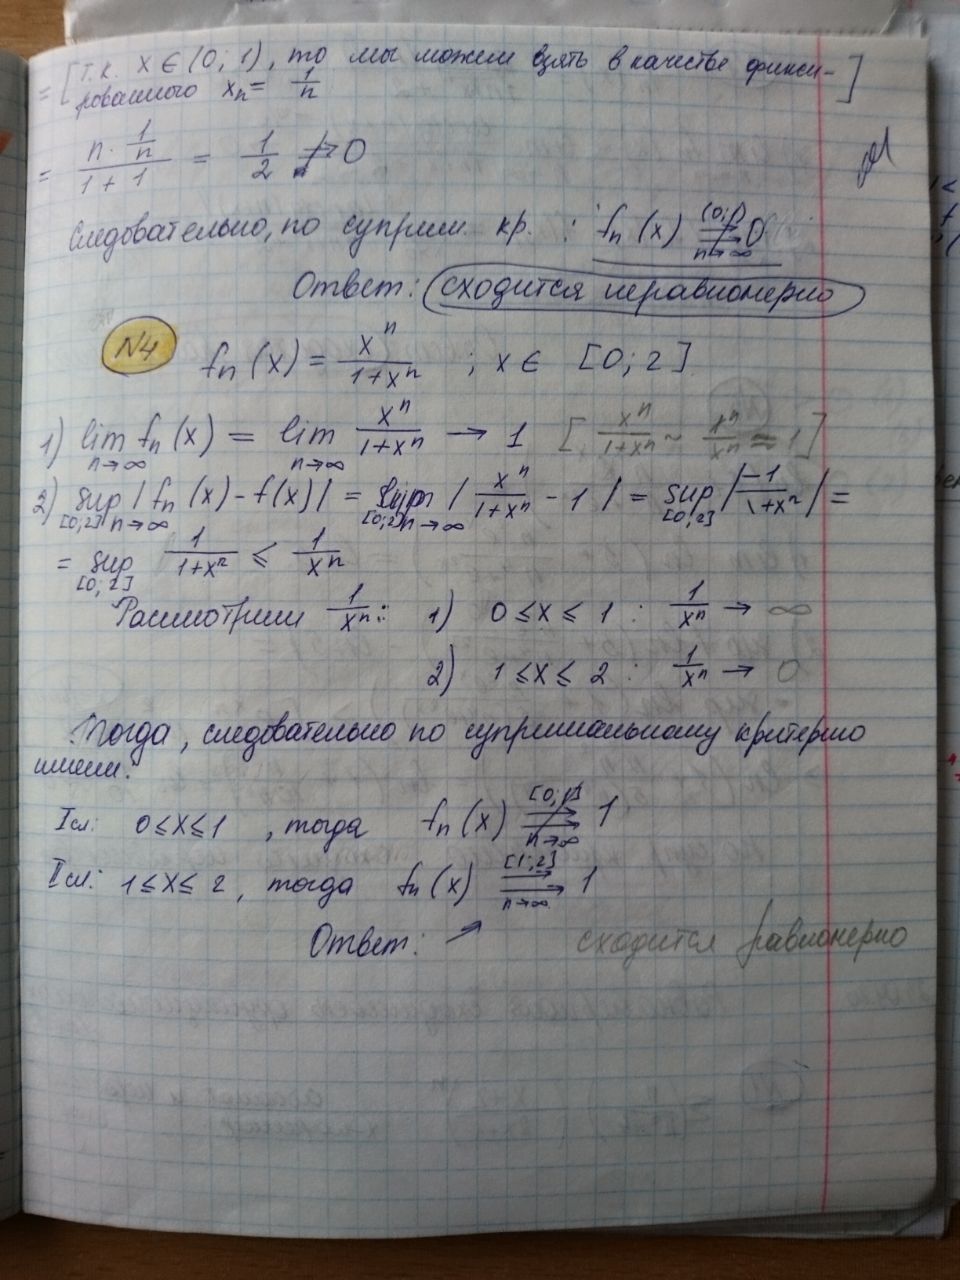 = [т.к. x ∈ (0; 1), то мы можем взять в качестве фикси-
рованного xₙ = 1/n ]
= (n · 1/n)/(1 + 1) = 1/2 ⇸ 0
Следовательно, по суприм. кр. : fₙ(x) ⇉̸ 0 (0;1) n→∞
Ответ: сходится неравномерно
N4 fₙ(x) = xⁿ/(1+xⁿ) ; x ∈ [0; 2]
1) lim n→∞ fₙ(x) = lim n→∞ xⁿ/(1+xⁿ) → 1 [ xⁿ/(1+xⁿ) ~ xⁿ/xⁿ = 1 ]
2) sup [0;2] n→∞ |fₙ(x) - f(x)| = sup [0;2] n→∞ | xⁿ/(1+xⁿ) - 1 | = sup [0;2] | -1/(1+xⁿ) | =
= sup [0;2] 1/(1+xⁿ) ≤ 1/xⁿ
Рассмотрим 1/xⁿ : 1) 0 ≤ x ≤ 1 : 1/xⁿ → ∞
2) 1 ≤ x ≤ 2 : 1/xⁿ → 0
Тогда, следовательно по супримальному критерию
имеем:
I сл: 0 ≤ x ≤ 1 , тогда fₙ(x) ⇉̸ 1 [0;1] n→∞
I сл: 1 ≤ x ≤ 2, тогда fₙ(x) ⇉ 1 [1;2] n→∞
Ответ: ↗ сходится равномерно